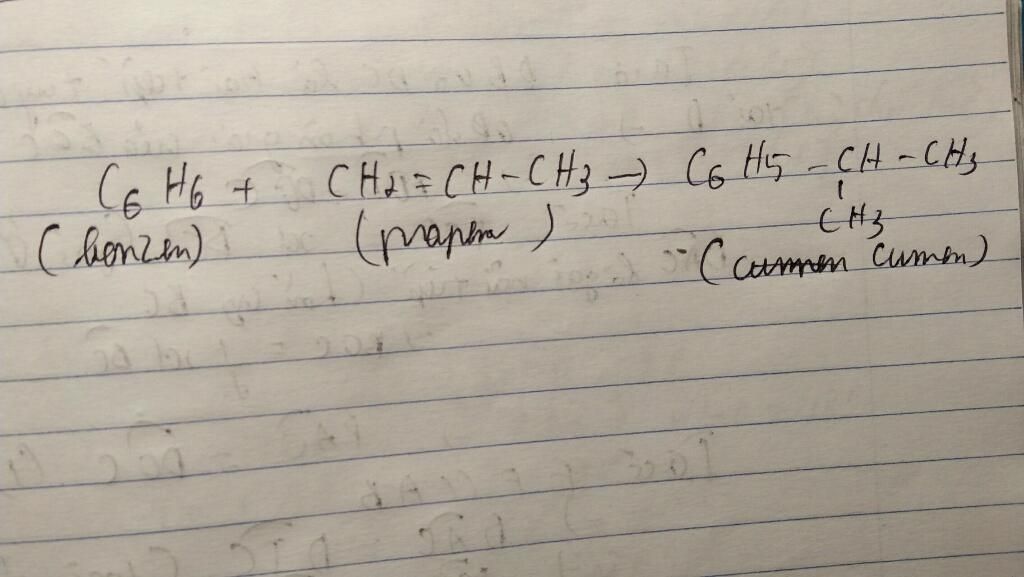 C6H6 + CH2 = CH - CH3 → C6H5 - CH - CH3
CH3
(benzen) (propen) - (cumen)